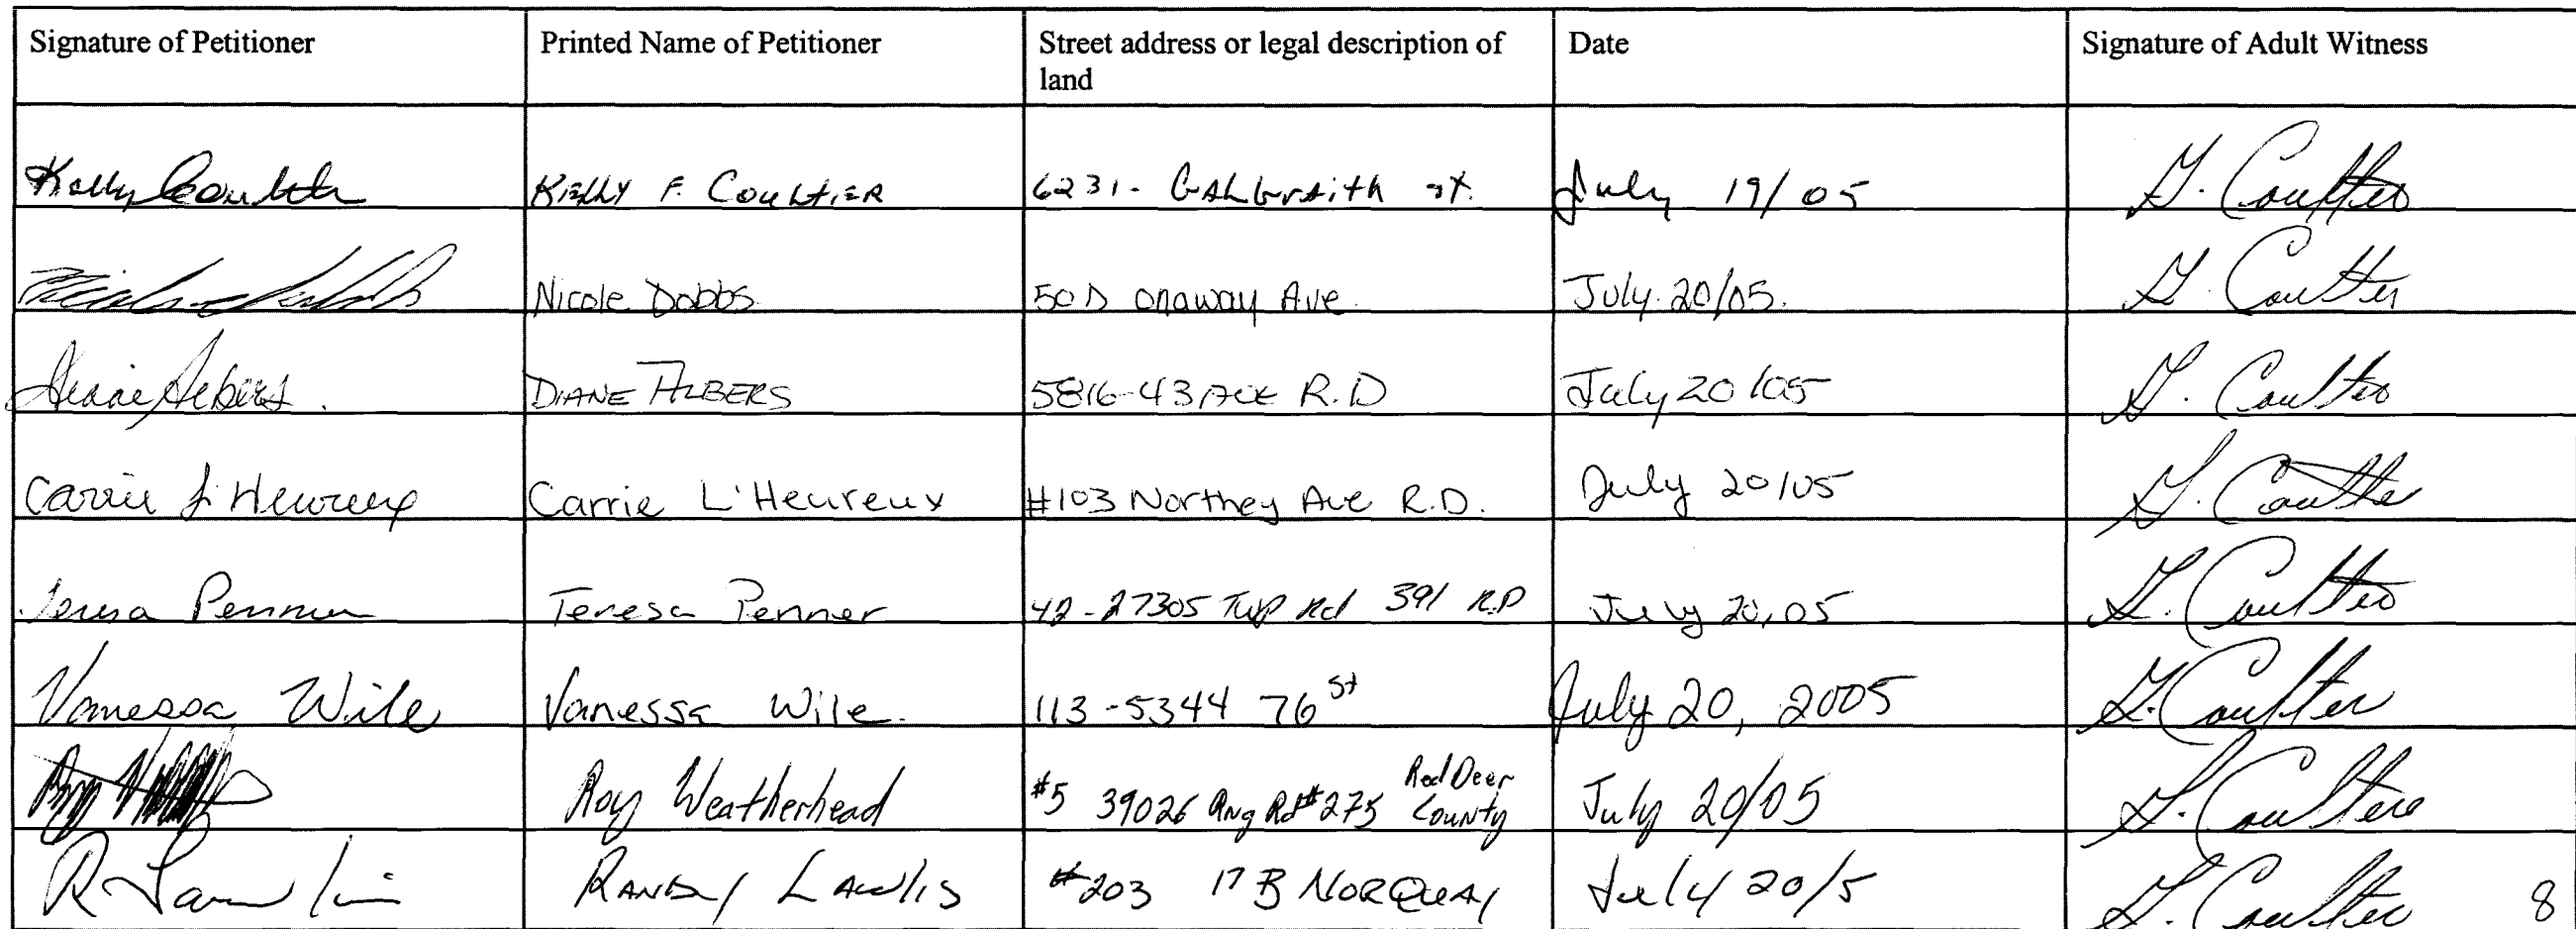 Signature of Petitioner Printed Name of Petitioner Street address or legal description of land Date Signature of Adult Witness
Kelly Coulter KELLY F. COULTER 6231- GALbrAith st. July 19/05 G. Coulter
Nicole Dobbs Nicole Dobbs 50D Onaway Ave. July 20/05. G. Coulter
Diane Albers. DIANE ALBERS 5816-43 AVE R.D July 20/05 G. Coulter
Carrie L'Heureux Carrie L'Heureux #103 Northey Ave R.D. July 20/05 G. Coulter
Teresa Penner Teresa Penner 42-27305 Twp Rd 391 R.D July 20,05 G. Coulter
Vanessa Wile Vanessa Wile. 113-5344 76 St July 20, 2005 G. Coulter
Roy Weatherhead #5 39026 Rng Rd #275 Red Deer County July 20/05 G. Coulter
R Lawlis RANDY LAWLIS #203 17B NORQUAY July 20/5 G. Coulter 8